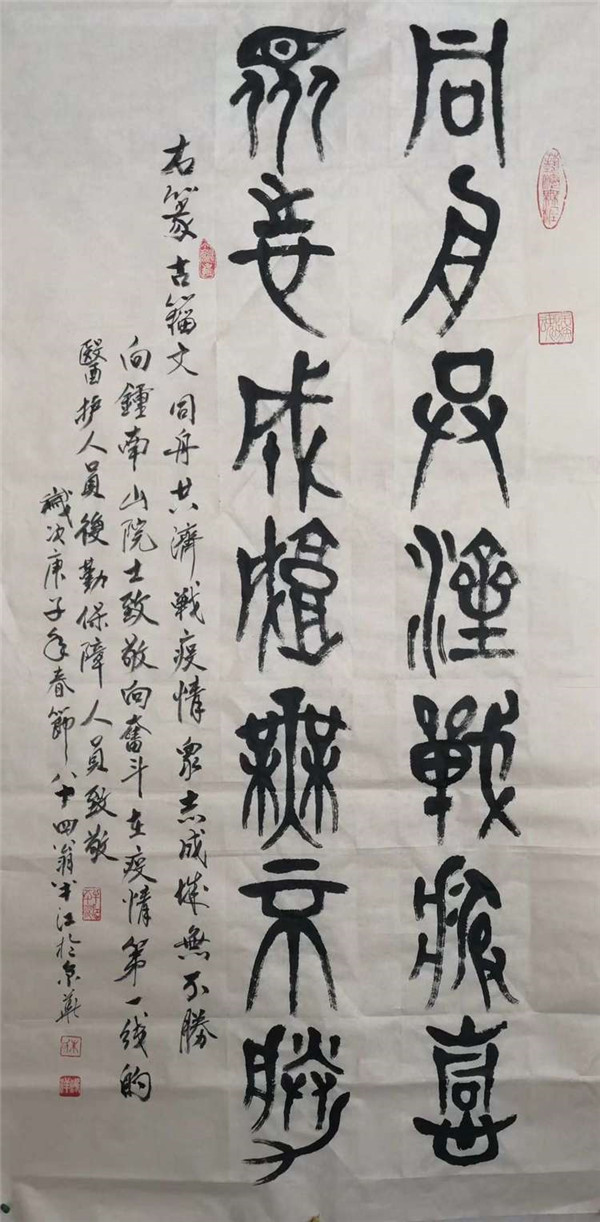 同舟共濟戰疫情
眾志成城無不勝
右篆古籀文同舟共濟戰疫情眾志成城無不勝
向鍾南山院士致敬向奮斗在疫情第一线的
醫护人員後勤保障人員致敬
歲次庚子年春節八十四翁半江於京華